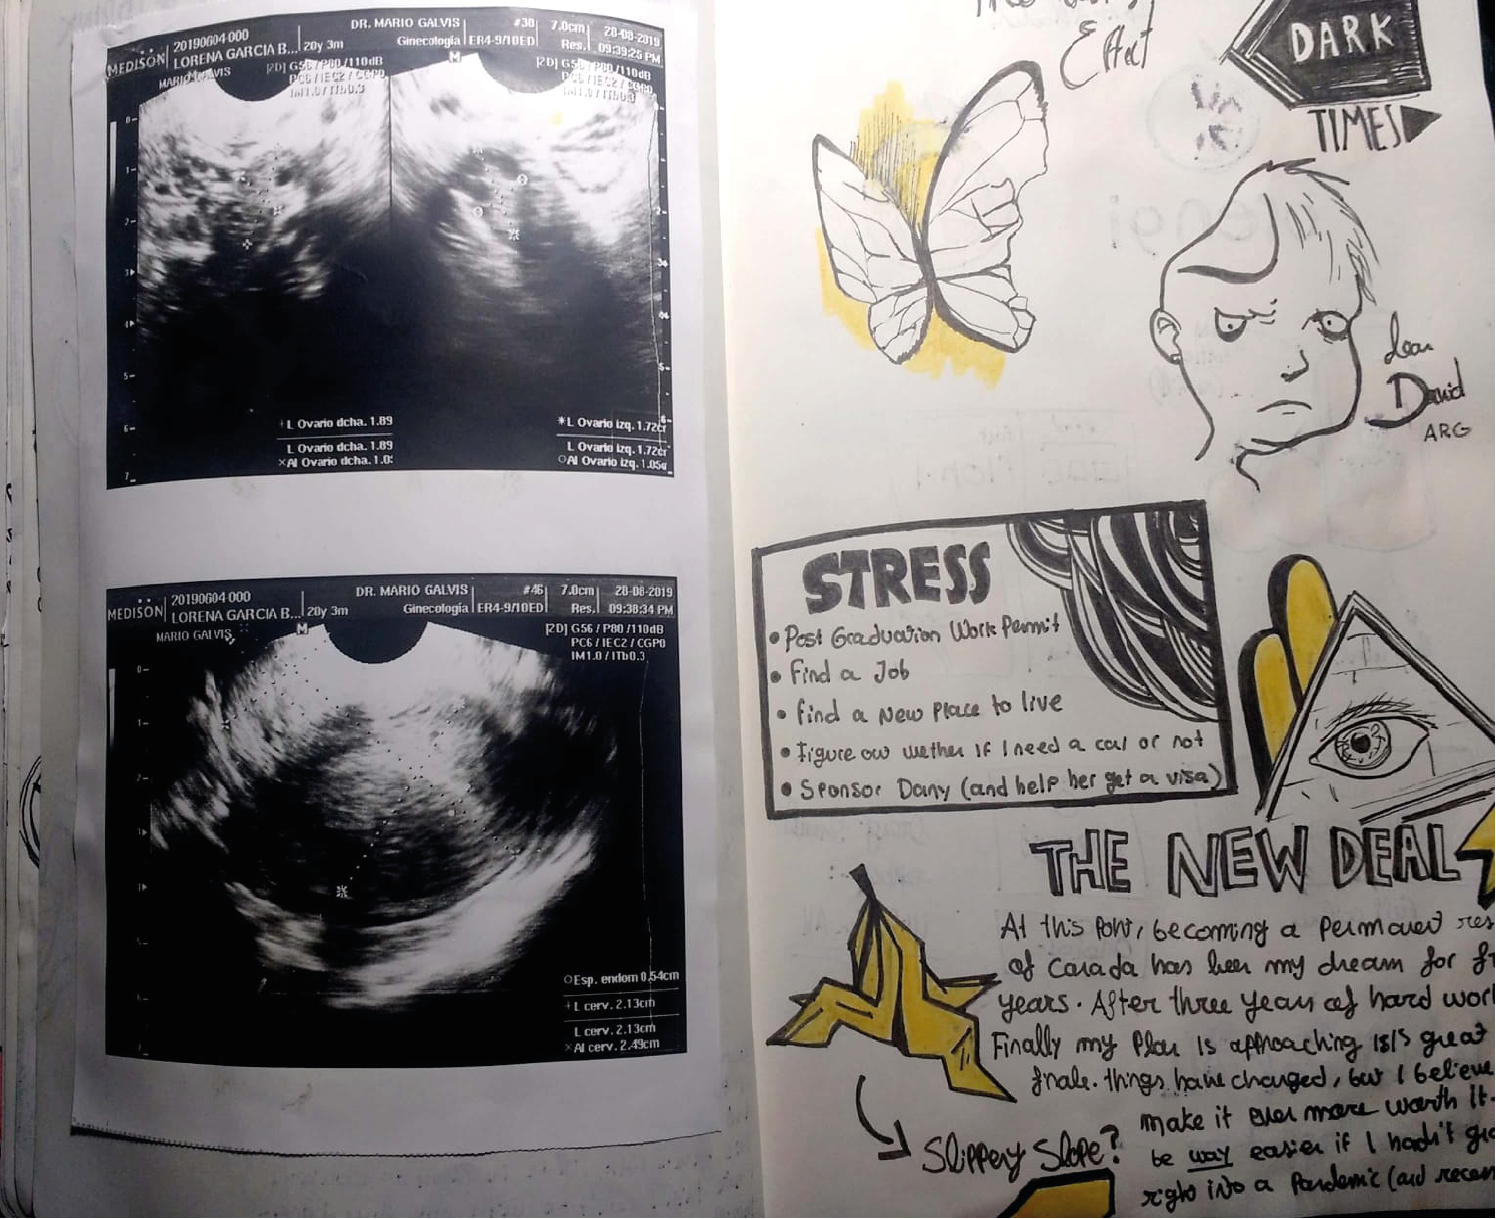 MEDISON
20190604-000
LORENA GARCIA B...
20y 3m
DR. MARIO GALVIS
Ginecologia
#38
ER4-9/10ED
7.0cm
Res.
28-08-2019
09:39:25 PM
MARIO GALVIS
[2D] G56 / P80 /110dB
PC6 / IEC2 / CGP0
IM1.0 / ITb0.3
M
[2D] G56 / P80 /110dB
PC6 / IEC2 / CGP0
IM1.0 / ITb0.3
+L Ovario dcha. 1.89
L Ovario dcha. 1.89
×Al Ovario dcha. 1.0
*L Ovario izq. 1.72cr
L Ovario izq. 1.72cr
○Al Ovario izq. 1.05
MEDISON
20190604-000
LORENA GARCIA B...
20y 3m
DR. MARIO GALVIS
Ginecologia
#46
ER4-9/10ED
7.0cm
Res.
28-08-2019
09:38:34 PM
MARIO GALVIS
M
[2D] G56 / P80 /110dB
PC6 / IEC2 / CGP0
IM1.0 / ITb0.3
○Esp. endom 0.54cm
+L cerv. 2.13cm
L cerv. 2.13cm
×Al cerv. 2.49cm
Effect
DARK
TIMES
David
ARG
STRESS
• Post Graduation Work Permit
• Find a Job
• find a New Place to live
• Figure ow wether if I need a car or not
• Sponsor Dany (and help her get a visa)
THE NEW DEAL
At this Point, becoming a Permanent res
of Canada has been my dream for f
years. After three years of hard wor
Finally my Plan is approaching is great
finale. things have changed, but I believe
make it even more worth it.
be way easier if I hadn't
right into a Pandemic (and recen
Slippery Slope?